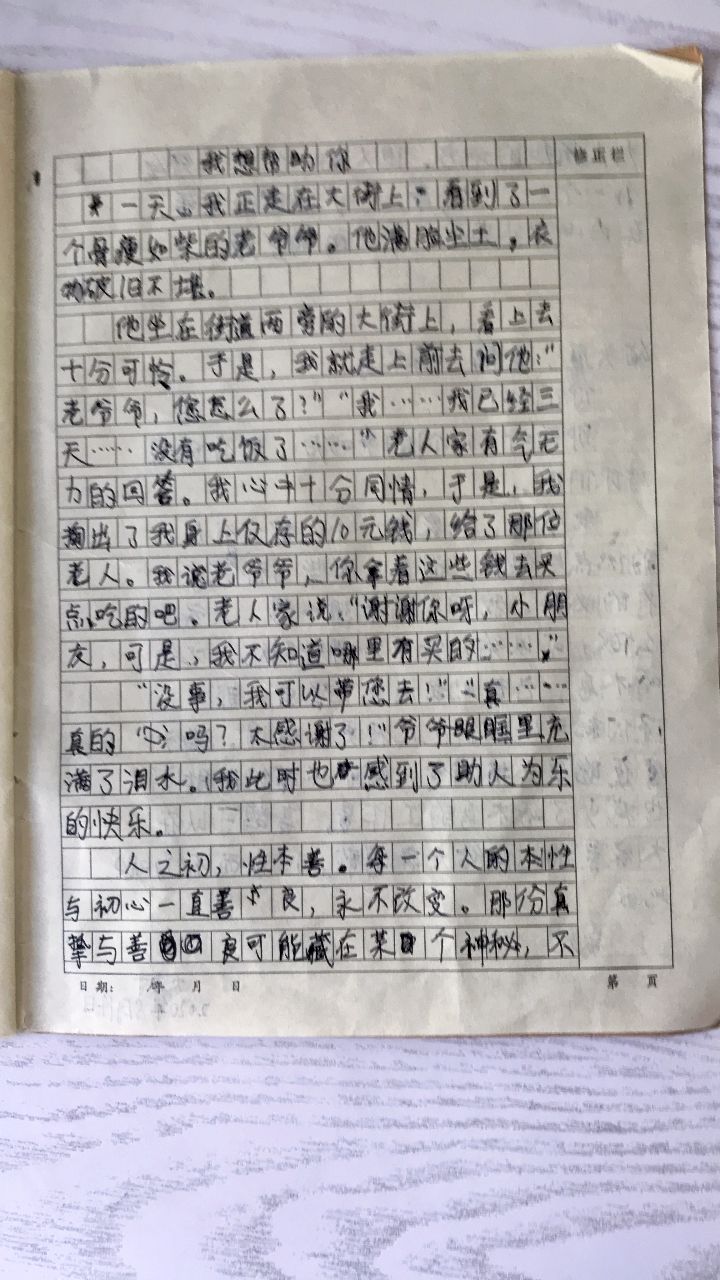 我想帮助你
修正栏
一天，我正走在大街上，看到了一
个骨瘦如柴的老爷爷。他满脸尘土，衣
物破旧不堪。
他坐在街道两旁的大街上，看上去
十分可怜。于是，我就走上前去问他：“
老爷爷，您怎么了？”“我……我已经三
天……没有吃饭了……”老人家有气无
力的回答。我心中十分同情，于是，我
掏出了我身上仅存的10元钱，给了那位
老人。我说老爷爷，你拿着这些钱去买
点吃的吧。老人家说：“谢谢你呀，小朋
友，可是，我不知道哪里有买的……”
“没事，我可以带您去！”“真……
真的吗？太感谢了！”爷爷眼眶里充
满了泪水。我此时也感到了助人为乐
的快乐。
人之初，性本善。每一个人的本性
与初心一直善良，永不改变。那份真
挚与善良可能藏在某个神秘，不
日期： 年 月 日
第 页